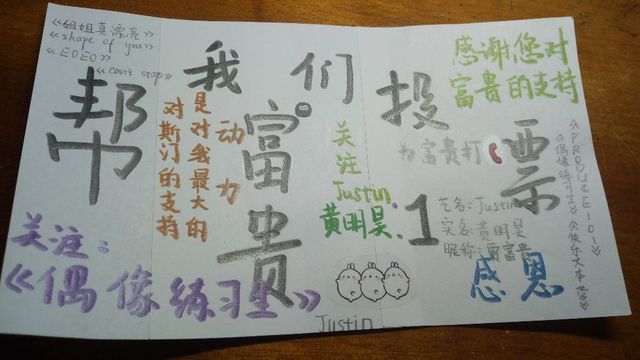 《姐姐真漂亮》
《shape of you》
《EOEO》
《can't stop》
帮我们富贵投1票
对斯汀的支持
是对我最大的
动力
关注
Justin.
黄明昊.
感谢您对
富贵的支持
为富贵打
艺名:Justin
实名:黄明昊
昵称:贾富贵
感恩
《PRODUCE101》
《偶像练习生》《快乐大本营》
关注:
《偶像练习生》
Justin